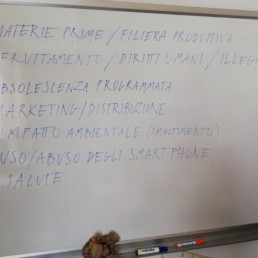 MATERIE PRIME / FILIERA PRODUTTIVA
SFRUTTAMENTO / DIRITTI UMANI / ILLEG
OBSOLESCENZA PROGRAMMATA
MARKETING/DISTRIBUZIONE
IMPATTO AMBIENTALE (SMALTIMENTO)
USO/ABUSO DEGLI SMARTPHONE
SALUTE